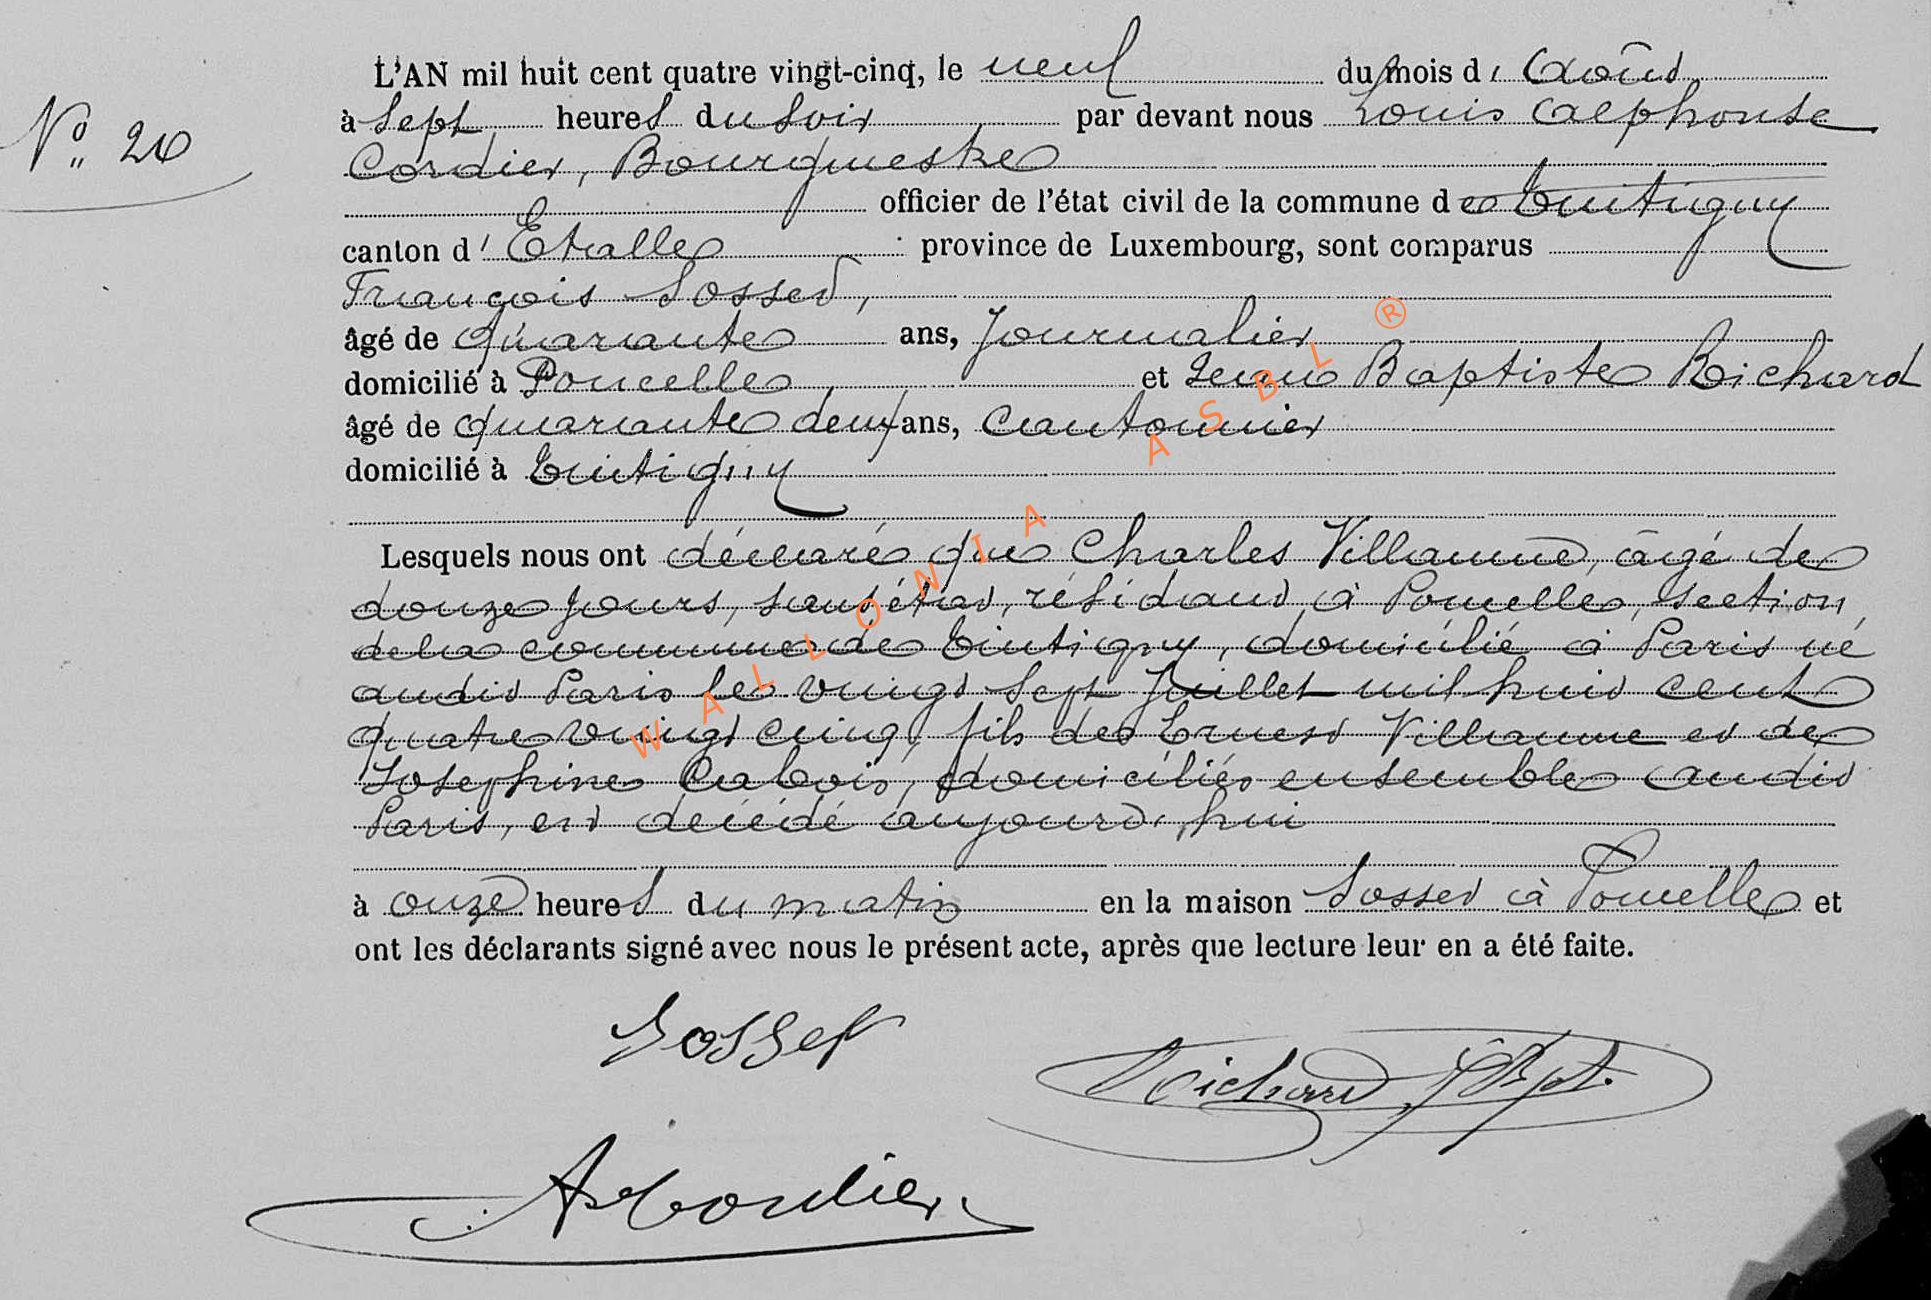 L'AN mil huit cent quatre vingt-cinq, le neuf du mois d'Août
à sept heures du soir par devant nous Louis Alphonse
N° 20
Cordier, Bourgmestre
officier de l'état civil de la commune de Tintigny
canton d'Etalle province de Luxembourg, sont comparus
François Sosset,
âgé de quarante ans, journalier
domicilié à Poncelle et Jean Baptiste Richard
âgé de quarante deux ans, cantonnier
domicilié à Tintigny
Lesquels nous ont déclaré que Charles Villaume, âgé de
douze jours, sans état, résidant à Poncelle, section
de la commune de Tintigny, domicilié à Paris né
audit Paris le vingt sept Juillet mil huit cent
quatre vingt cinq, fils de Ernest Villaume et de
Josephine Cabois, domiciliés ensemble audit
Paris, est décédé aujourd'hui
à onze heures du matin en la maison Sosset à Poncelle et
ont les déclarants signé avec nous le présent acte, après que lecture leur en a été faite.
Sosset
Richard JBpt.
A Cordier
WALLONIA ASBL ®